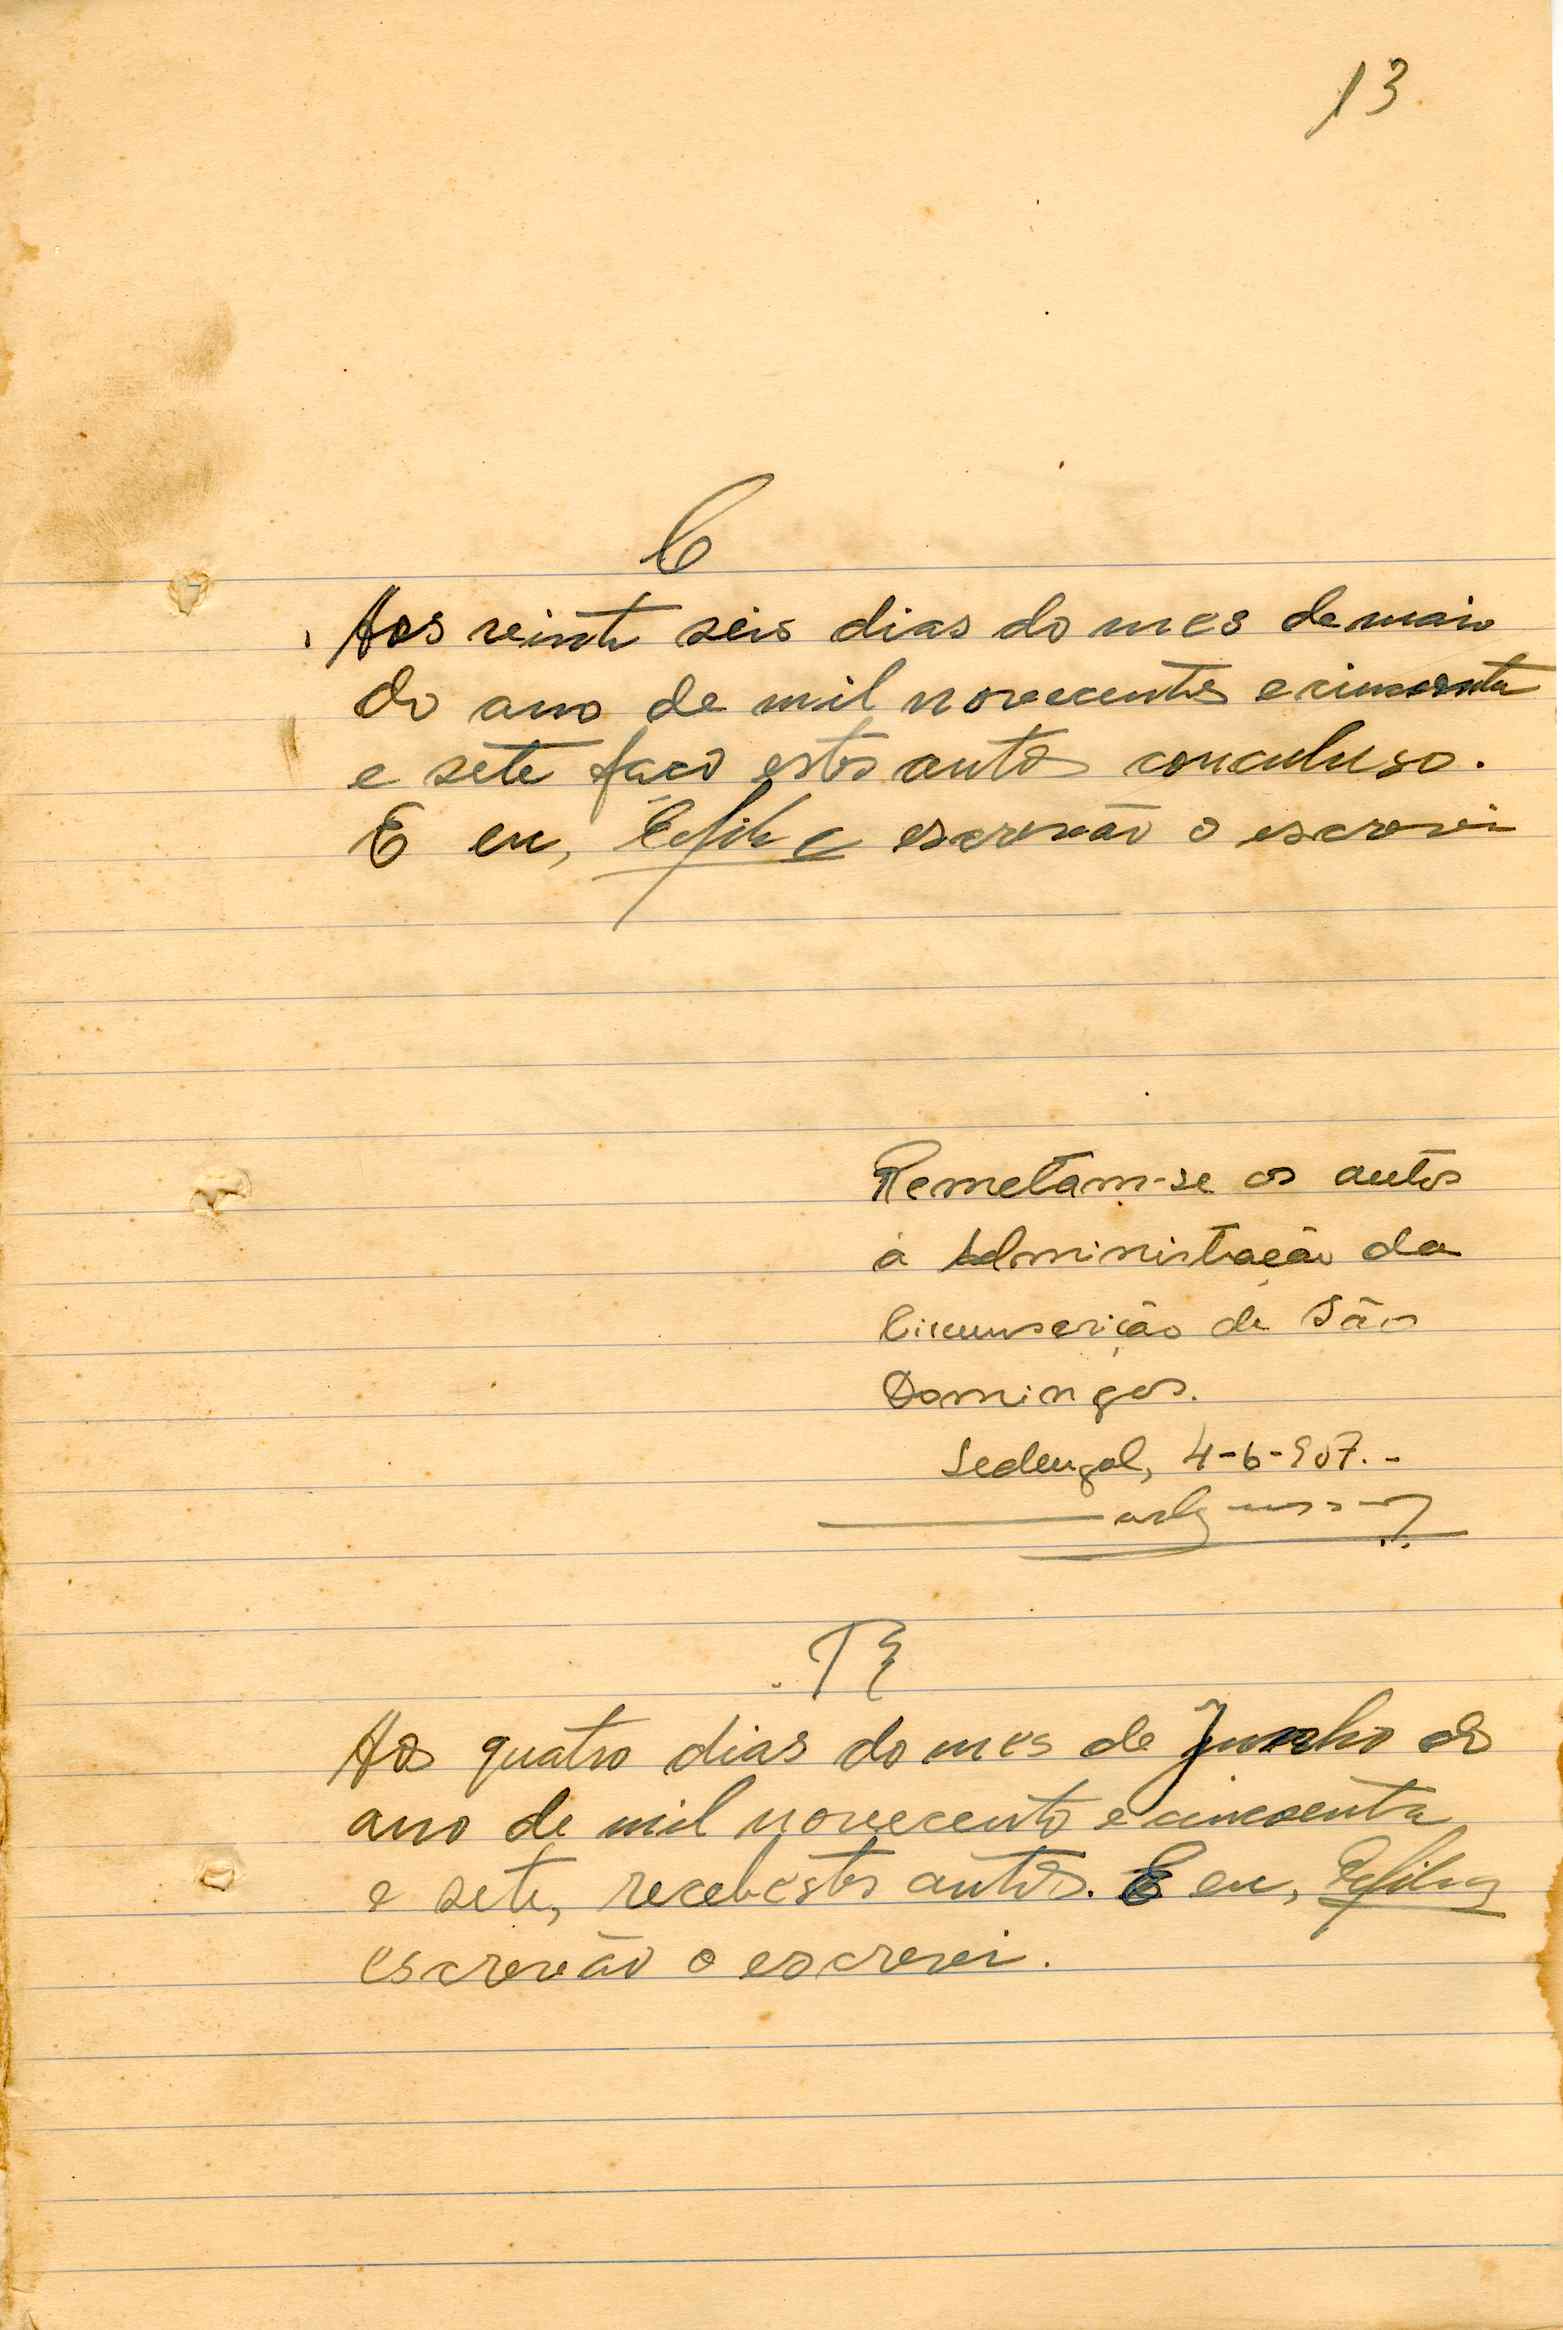 13
C
Aos vinte seis dias do mes de maio
do ano de mil novecentos e cincoenta
e sete faço estos autos concluso.
E eu, escrivão o escrevi
Remetam-se os autos
à Administração da
Circunscrição de São
Domingos.
Sedengal, 4-6-957.-
TR
Aos quatro dias do mes de Junho do
ano de mil novecento e cincoenta
e sete, recebi estos autos. E eu,
escrevão o escrevi.